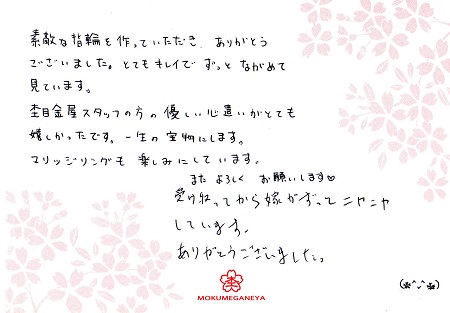 素敵な指輪を作っていただき、ありがとう
ございました。とてもキレイで ずっと ながめて
見ています。
杢目金屋スタッフの方の 優しい心遣いがとても
嬉しかったです。一生の宝物にします。
マリッジリングも 楽しみにしています。
また よろしく お願いします♡
受け取ってから嫁がずってニヤニヤ
しています。
ありがとうございました。
(✿^ᵕ^✿)
杢
MOKUMEGANEYA